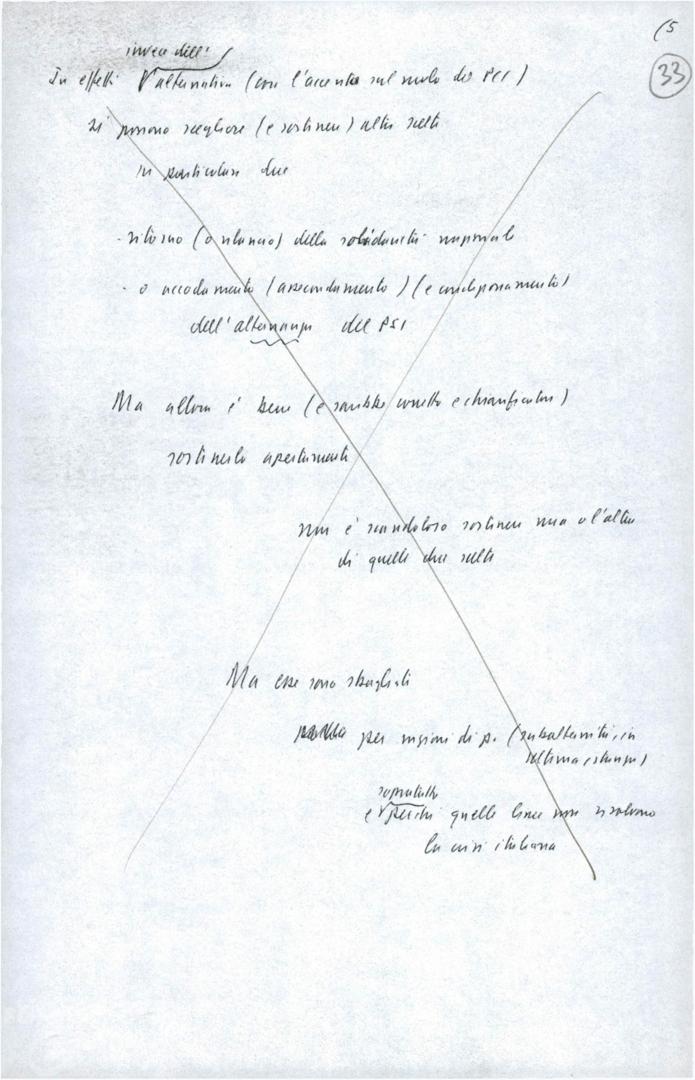 (5
33
invece dell'
In effetti alternativa (con l'accento sul ruolo del PCI)
si possono scegliere (e sostinere) altre scelte
in particolare due
- ritorno (o rilancio) della solidarietà nazionale
- o accodamento (assecondamento) (e condizionamento)
dell'alternanza del PSI
Ma allora è bene (e sarebbe corretto e chiarificatore)
sostenerlo apertamente
non è scandaloso sostenere una o l'altra
di quelle due scelte
Ma esse sono sbagliate
per ragioni di p. (subalternità, in
ultima istanza)
soprattutto
e perché quelle linee non risolvono
la crisi italiana